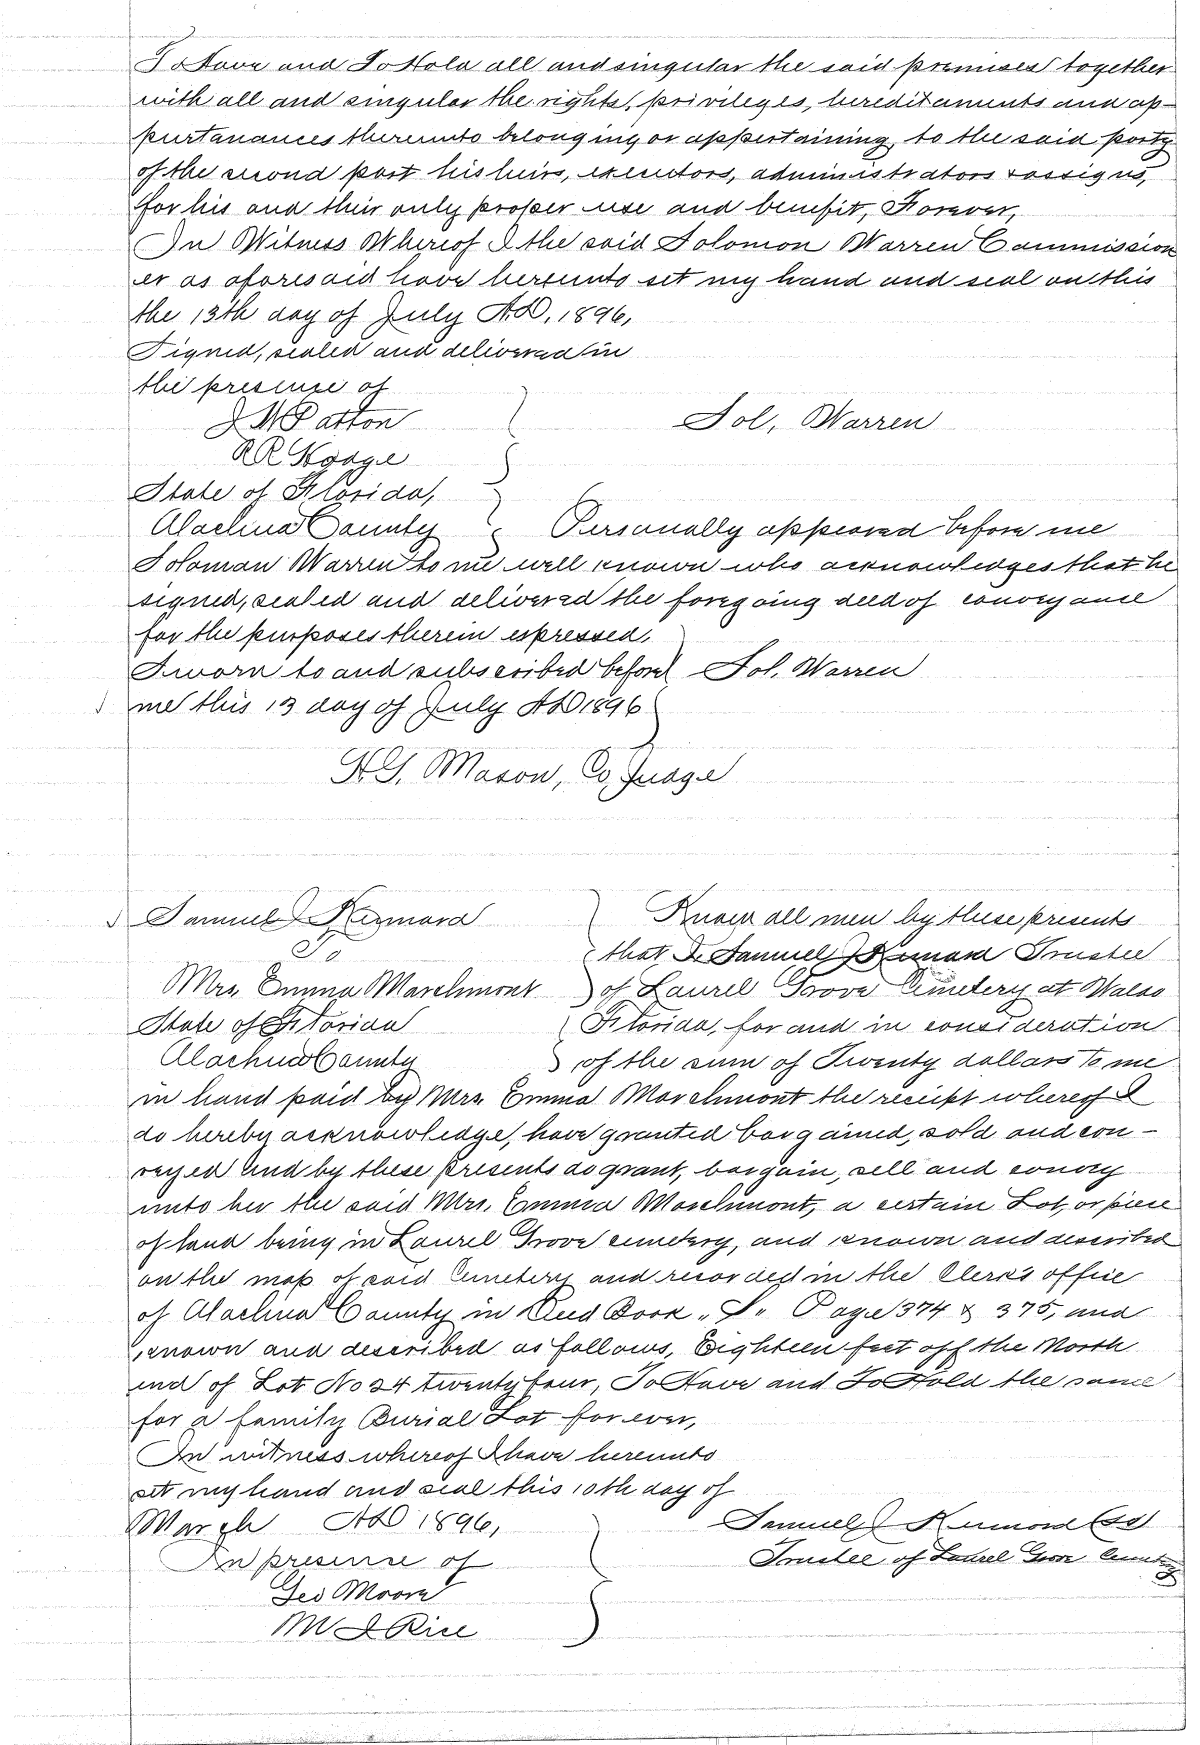 To Have and To Hold all and singular the said premises together
with all and singular the rights, privileges, hereditaments and ap-
purtanances thereunto belonging or appertaining, to the said party
of the second part his heirs, executors, administrators & assigns,
for his and their only proper use and benefit, Forever,
In Witness Whereof I the said Solomon Warren Commission
er as aforesaid have hereunto set my hand and seal on this
the 13th day of July A.D. 1896,
Signed, sealed and delivered in
the presence of
J M Patton
Sol, Warren
R R
State of Florida,
Alachua County Personally appeared before me
Soloman Warren to me well known who acknowledges that he
signed, sealed and delivered the foregoing deed of conveyance
for the purposes therein expressed,
Sworn to and subscribed before Sol. Warren
me this 13 day of July AD 1896
H.G. Mason, Co, Judge
Samuel J Kennard Know all men by these presents
To
that I Samuel J Kennard Trustee
Mrs, Emma Marchmont of Laurel Grove Cemetery at Waldo
State of Florida Florida, for and in consideration
Alachua County of the sum of Twenty dollars to me
in hand paid by Mrs. Emma Marchmont the receipt whereof I
do hereby acknowledge, have granted bargained, sold and con-
veyed and by these presents do grant, bargain, sell and convey
unto her the said Mrs. Emma Marchmont, a certain Lot, or piece
of land being in Laurel Grove cemetery, and known and described
on the map of said Cemetery and recorded in the Clerk's office
of Alachua County in Deed Book "S" Page 374 & 375, and
known and described as follows, Eighteen feet off the North
end of Lot No 24 twenty four, To Have and To Hold the same
for a family Burial Lot forever,
In witness whereof I have hereunto
set my hand and seal this 10th day of
March AD 1896, Samuel J Kennard
In presence of Trustee of Laurel Grove Cemetery
Geo Moore
M J Rice